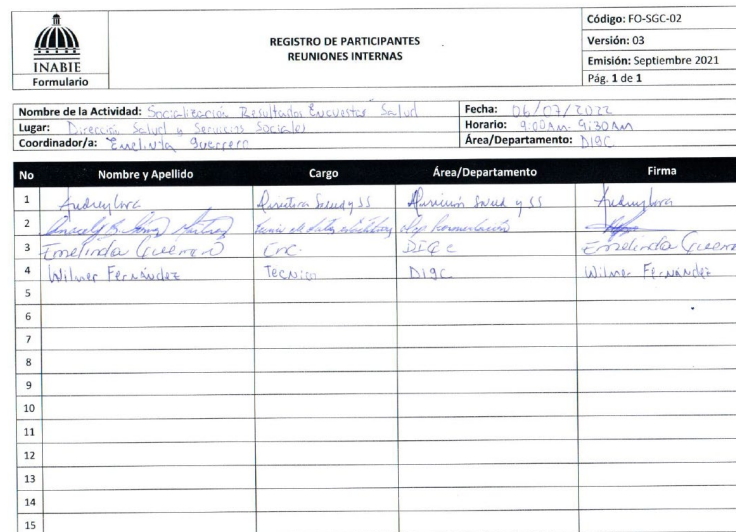 INABIE
Formulario
REGISTRO DE PARTICIPANTES
REUNIONES INTERNAS
Código: FO-SGC-02
Versión: 03
Emisión: Septiembre 2021
Pág. 1 de 1
Nombre de la Actividad: Socialización Resultados Encuestas Salud
Fecha: 06/07/2022
Lugar: Dirección Salud y Servicios Sociales
Horario: 9:00 AM - 9:30 AM
Coordinador/a: Emelinda Guerrero
Área/Departamento: DIGC
No Nombre y Apellido Cargo Área/Departamento Firma
1 Audrey Lora Directora Salud y SS Dirección Salud y SS Audrey Lora
2
3 Emelinda Enc. DIGC Emelinda
4 Wilmer Fernández Tecnico DIGC Wilmer Fernández
5
6
7
8
9
10
11
12
13
14
15